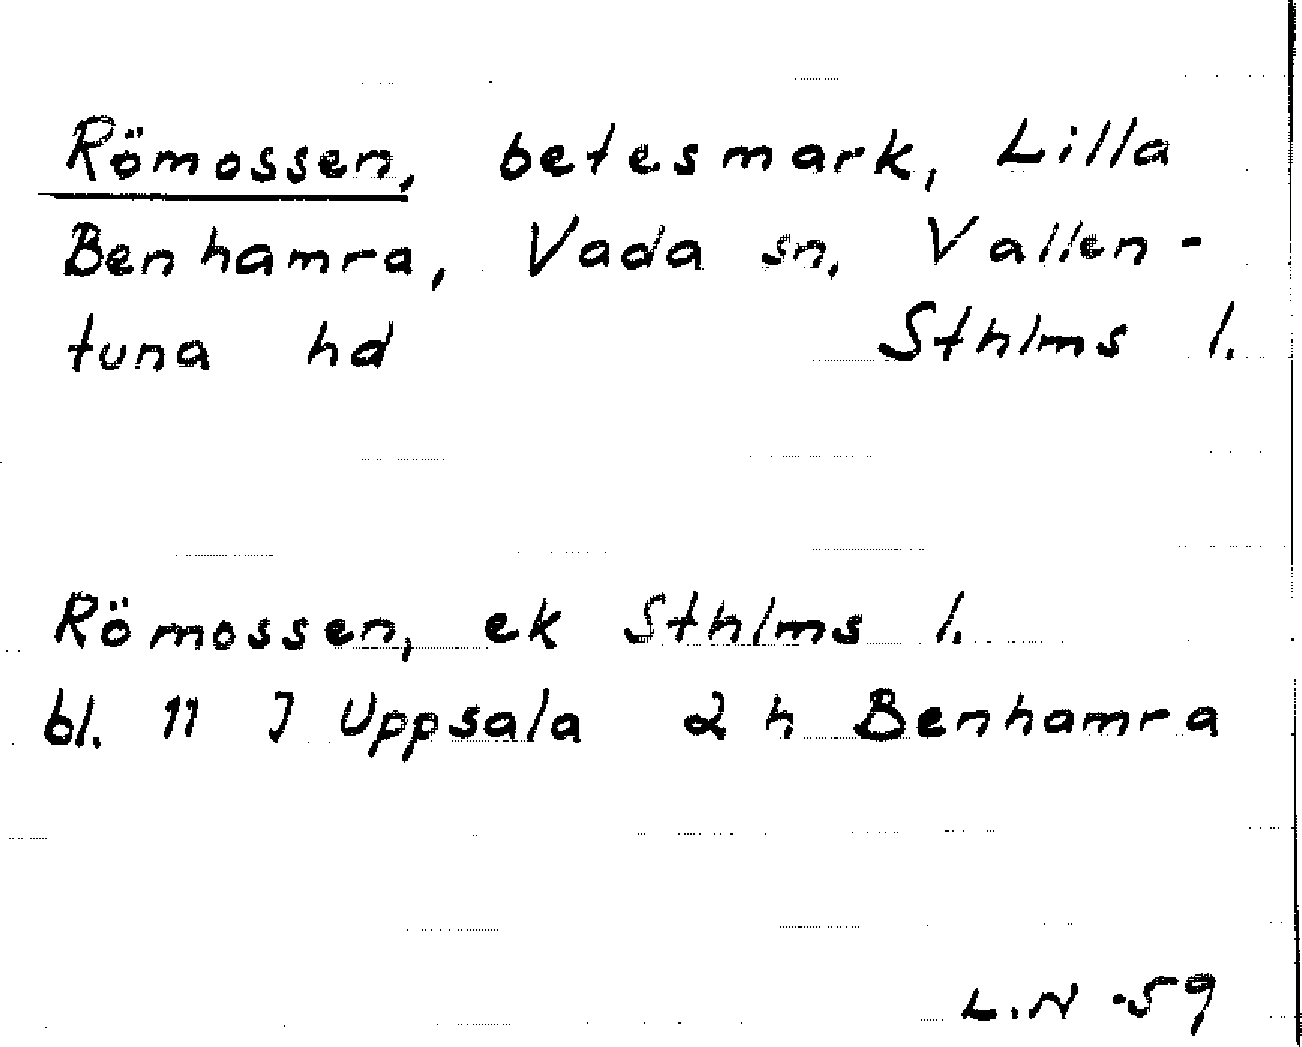 Römossen, betesmark, Lilla
Benhamra, Vada sn, Vallen-
tuna hd Sthlms l.
Römossen, ek Sthlms l.
bl. 11 I Uppsala 2 h Benhamra
L.N -59